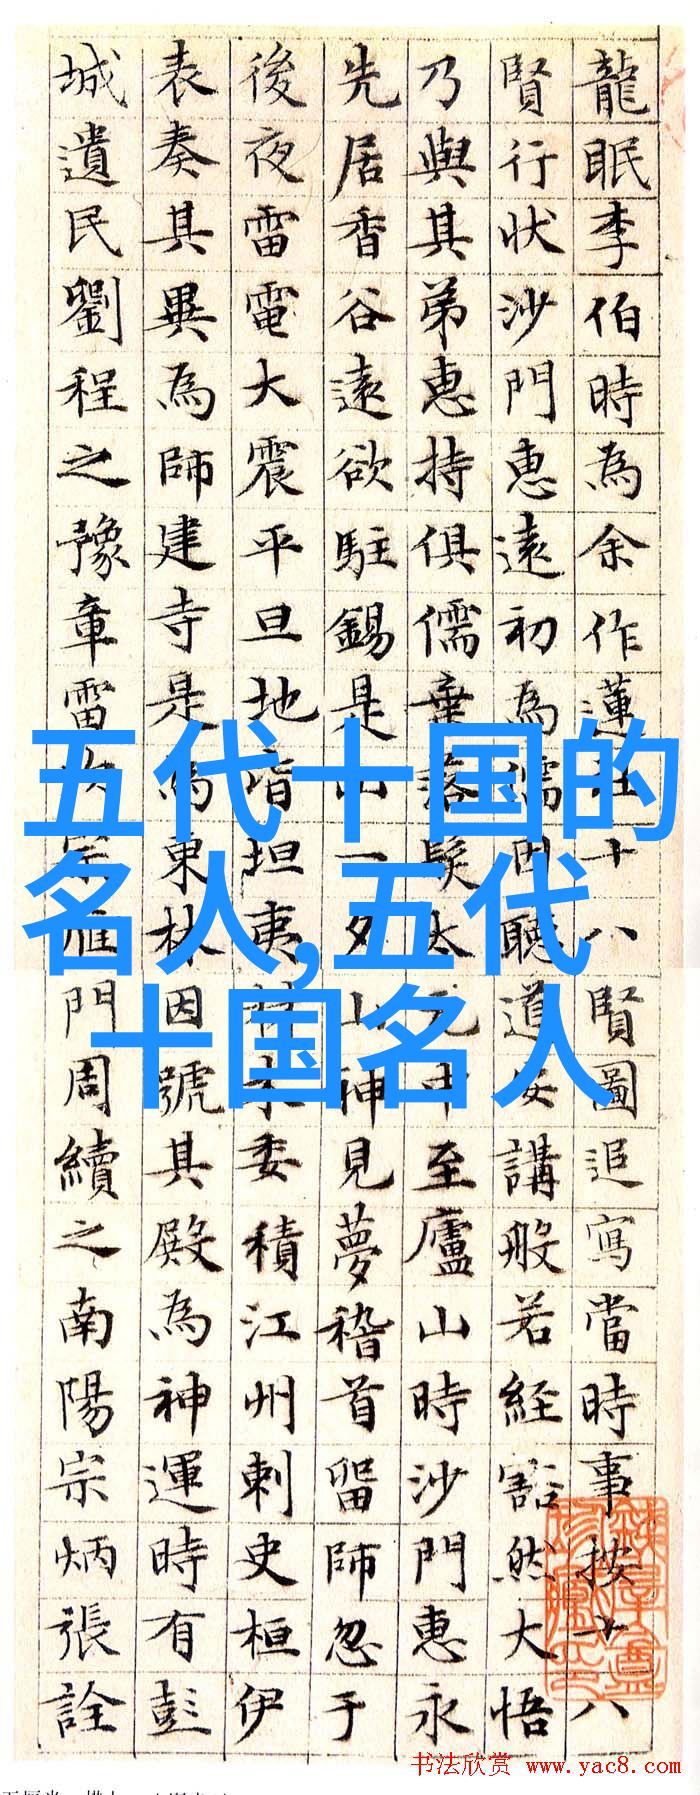 龍眠李伯時為余作蓮社十八賢圖追寫當時事按十八
賢行狀沙門惠遠初為儒因聽道安講般若經豁然大悟
乃與其弟惠持俱儒棄落髮太元中至廬山時沙門惠永
先居香谷遠欲駐錫是山一夕山神見夢稽首留師忽于
後夜雷電大震平旦地皆坦夷材木委積江州刺史桓伊
表奏其異為師建寺是為東林因號其殿為神運時有彭
城遺民劉程之豫章雷次宗雁門周續之南陽宗炳張詮
五代十国的
名人,五代
十国名人
书法欣赏 www.yac8.com